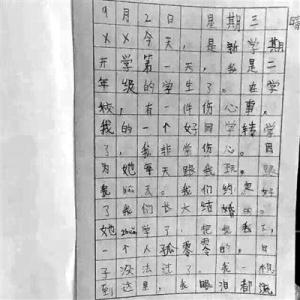 9月2日 星期三 晴
XX今天，是新学期
开学第一天，我是二
年级的学生了。在学
校，有一件伤心事，
我的一个好同学转学
了，我非常伤心。因
为她每天跟我玩，跟
我聊天。我们约好
了我们长大结婚的。
她zhuan学了，把我
一个人孤零零的，日
子没法过了，我一想
到这里，我眼泪都